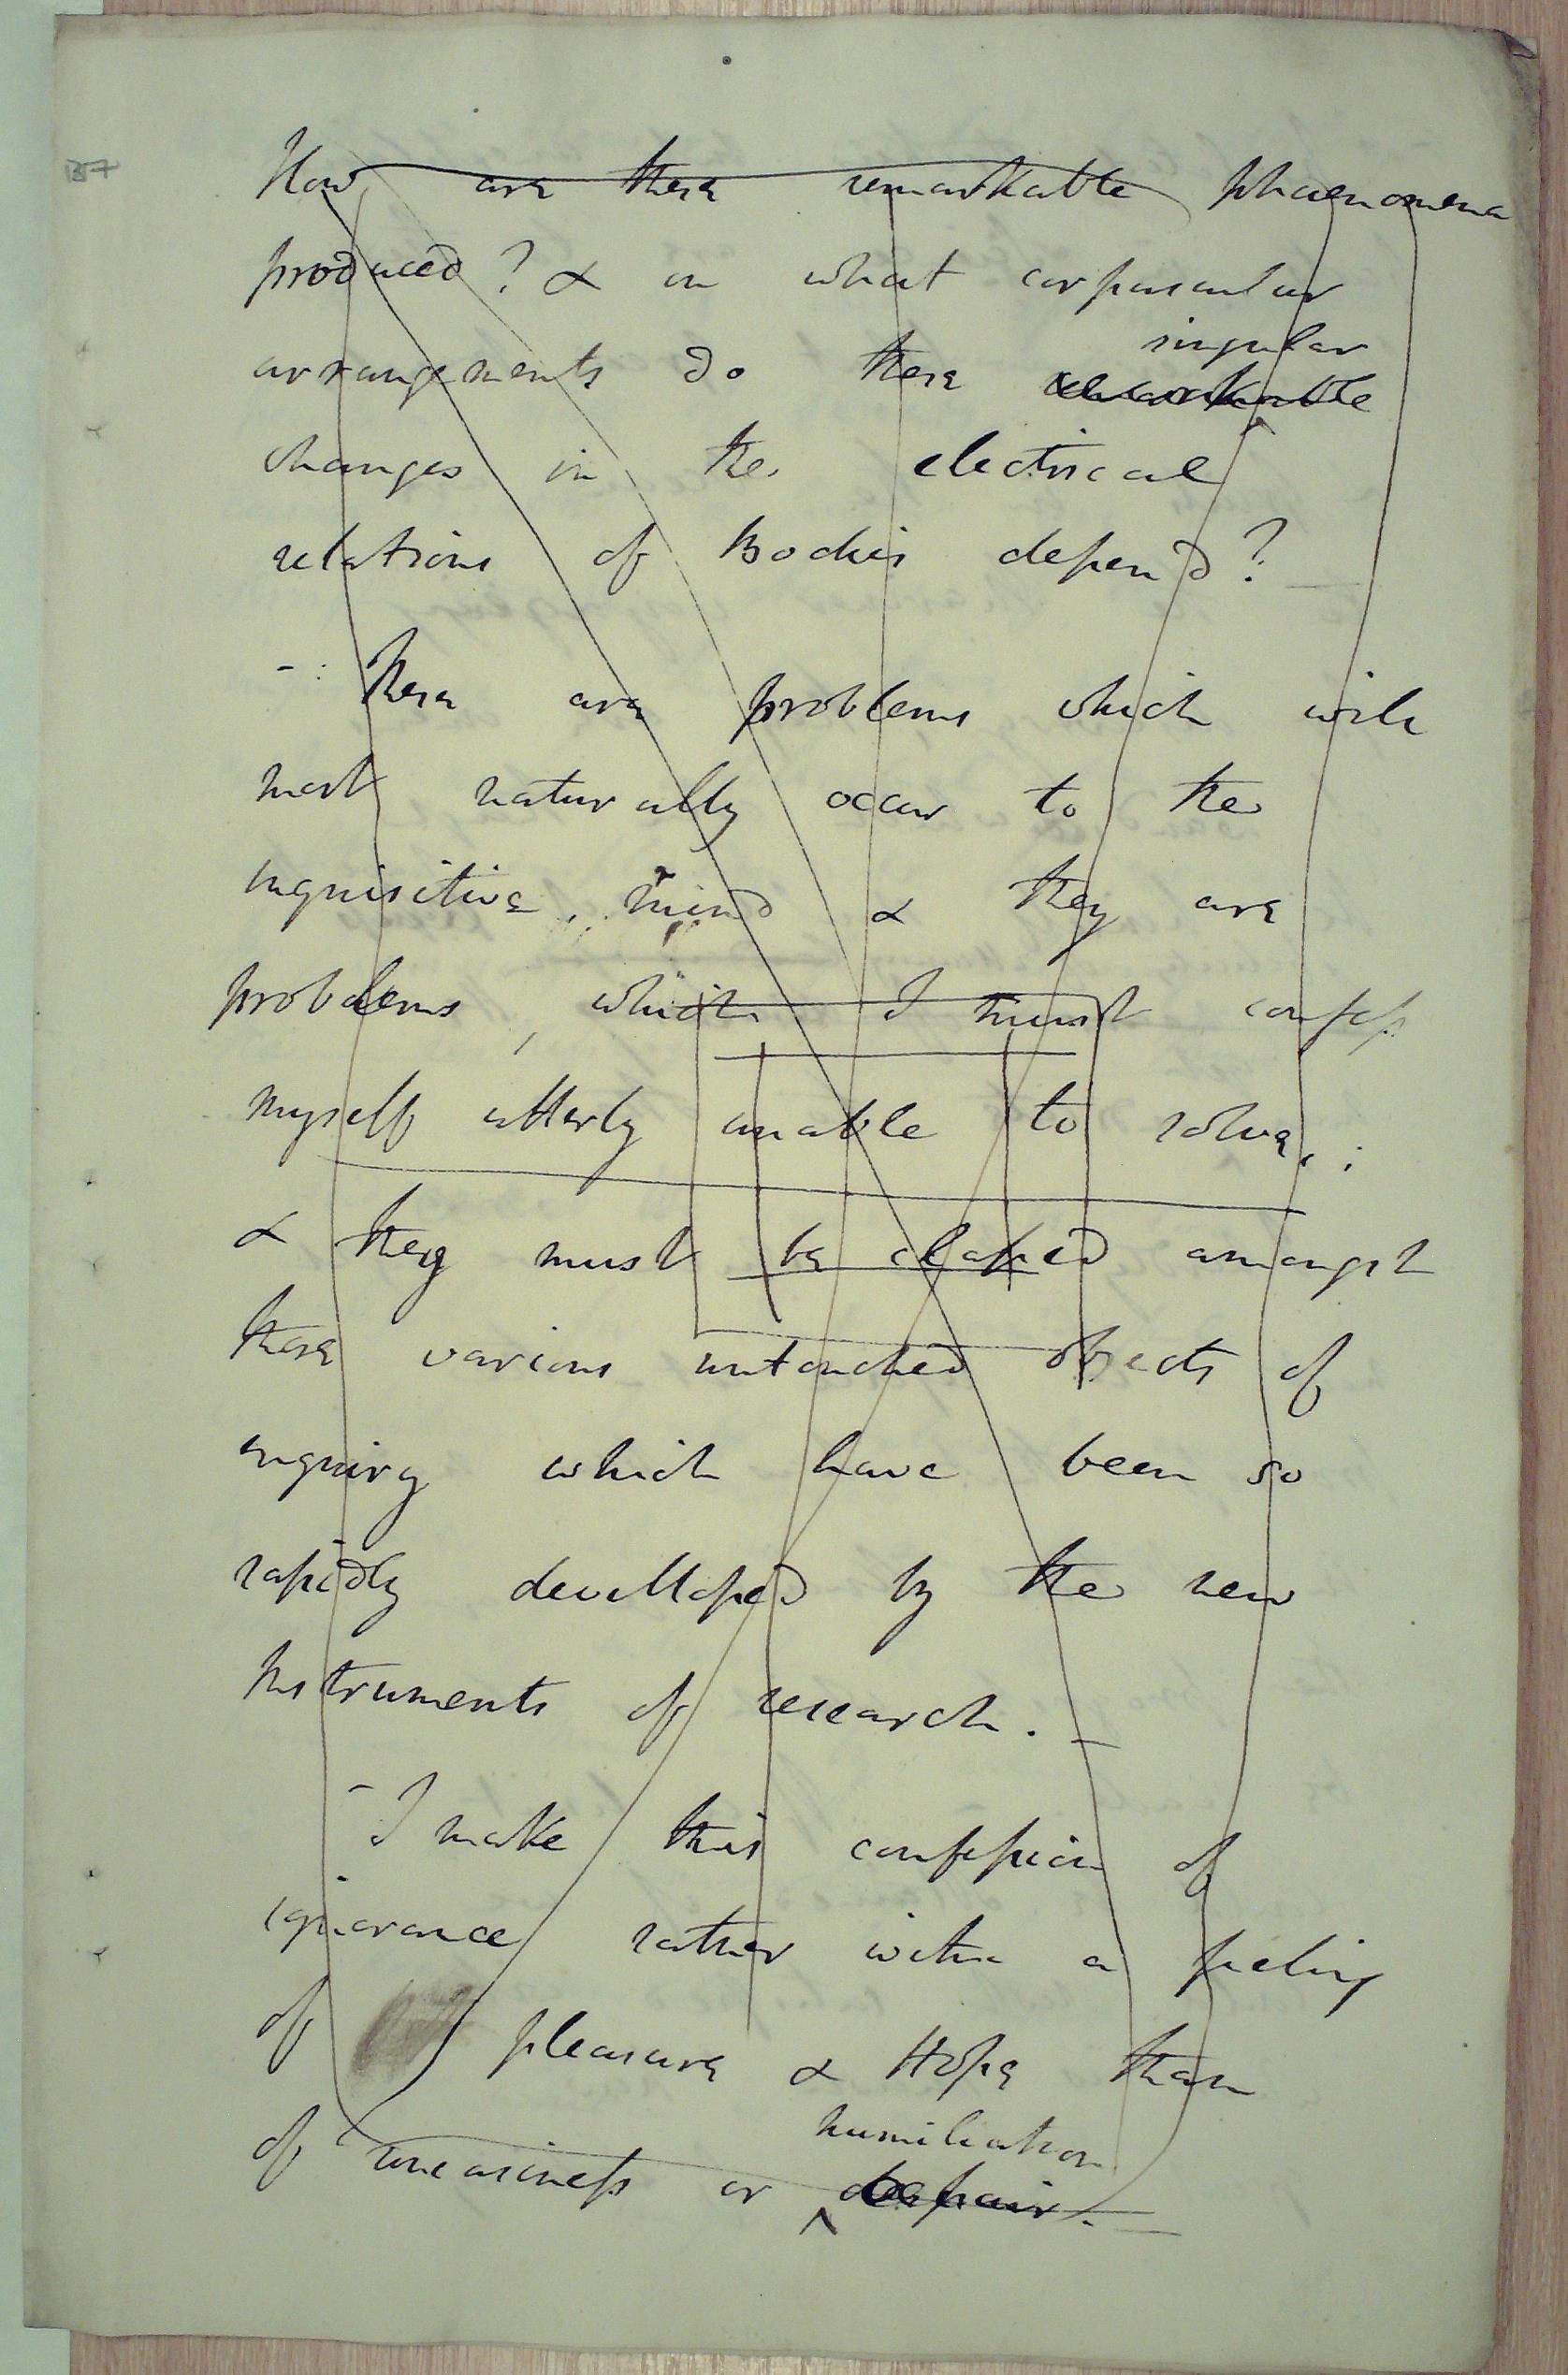 137
How are these remarkable phaenomena
produced? & on what corpuscular
singular
arrangements do these remarkable
changes in the electrical
relations of Bodies depend? _
- These are problems which will
most naturally occur to the
inquisitive, mind & they are
problems, which I must confess
myself utterly unable to solve, ;
& they must be classed amongst
these various untouched objects of
enquiry which have been so
rapidly develloped by the new
Instruments of research. _
- I make this confession of
ignorance rather with a feeling
of pleasure & Hope than
humiliation
of uneasiness or despair. _